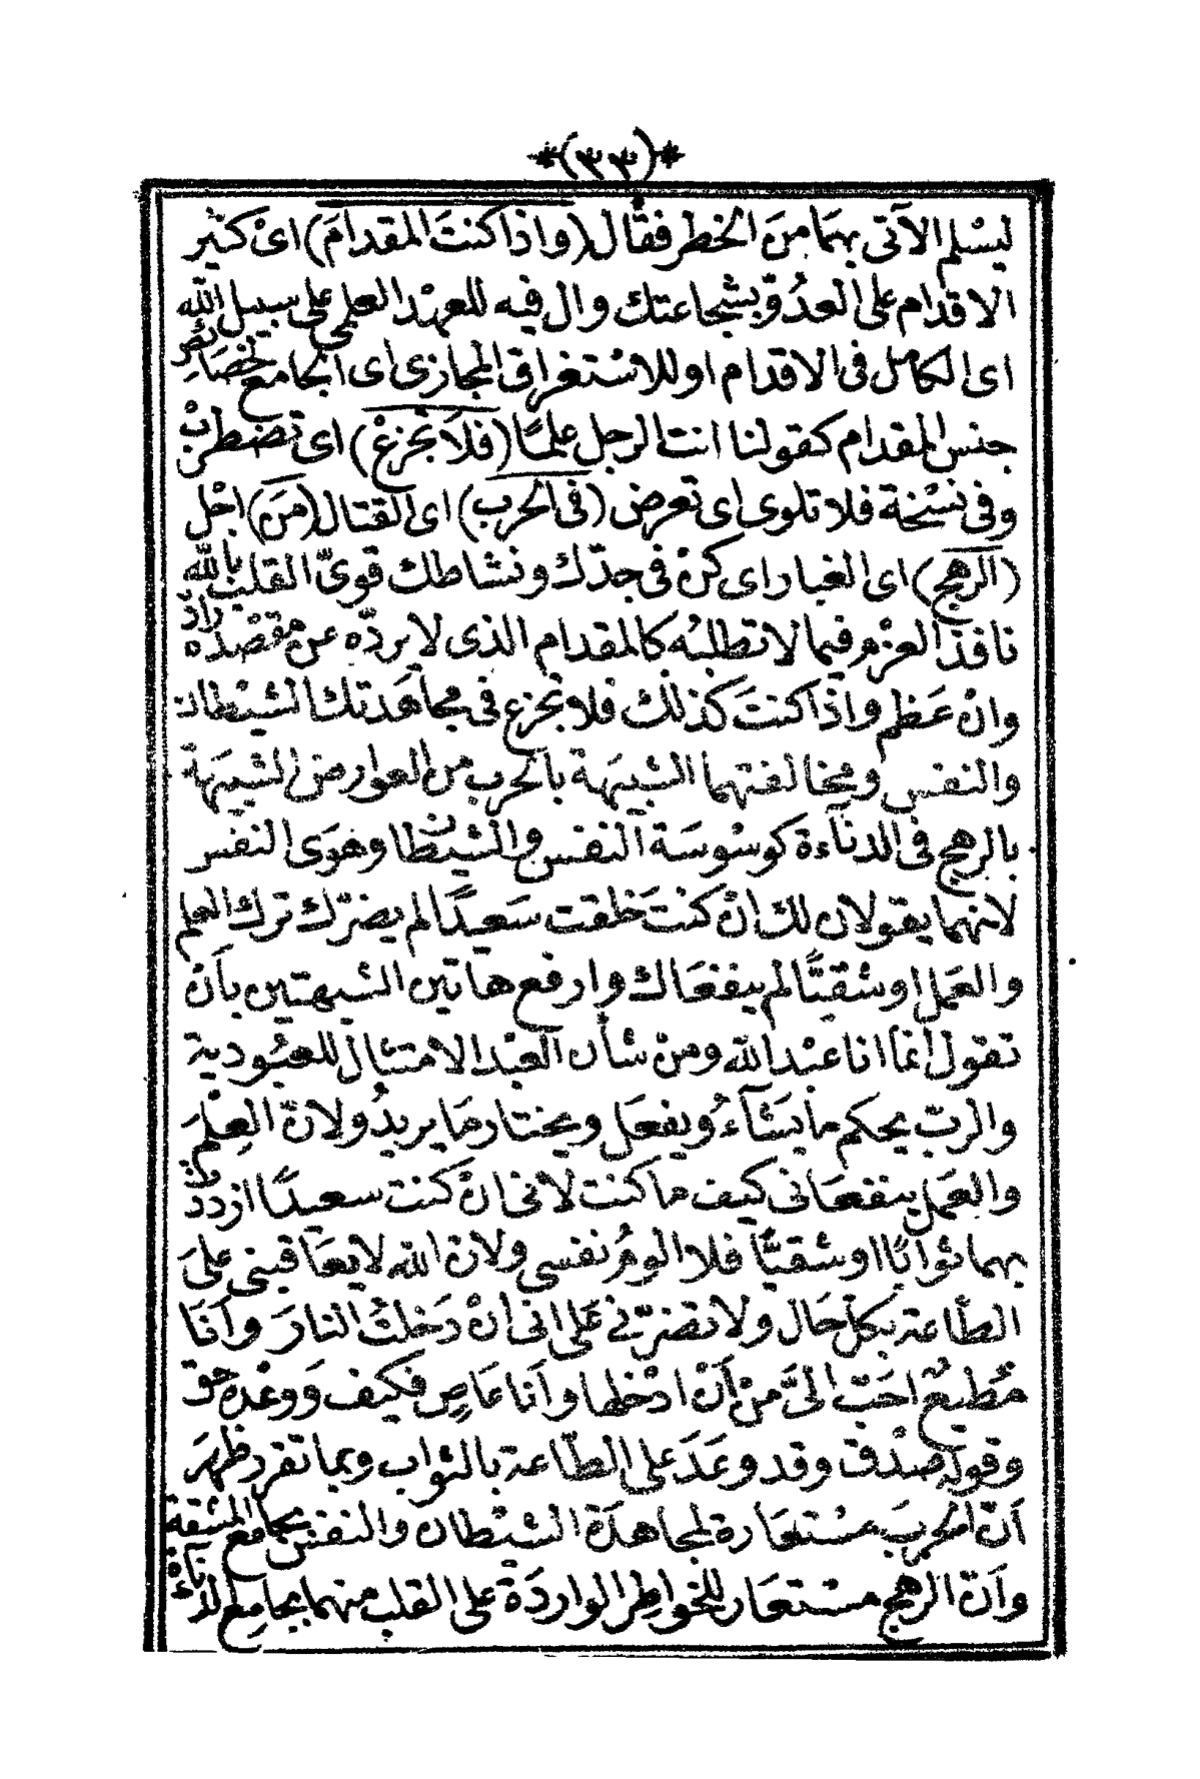 *(٣٣)*
ليسْلم الآتى بهمَا منَ الخطر فقال (واذا كنتَ المقدامَ) اىْ كثير
الاقدام على العدُوّ بشجاعتك وال فيه للعهْد العلمى على سبيل اللّه
اى الكامل فى الاقدام او للاسْتغراق المجازى اى الجامع لخصَائصِ
جنس المقدام كقولنا انت الرجل علمًا (فلاَ تجزعْ) اى تضطربْ
وفى نسْخة فلا تلوى اى تعرض (فى الحربِ) اى القتال (منَ) اجْل
(الرهجِ) اى الغبار اى كنْ فى جدّك ونشاطك قوىّ القلب باللّه
نافذ العزم فيما لا تطلبُه كالمقدام الذى لا يردّه عن مقصْده رادّ
وانْ عَظم واذا كنتَ كذلك فلا تجزع فى مجاهَدتك الشيْطان
والنفس ومخالفتهما الشبيهَة بالحرب من العوارض الشبيهَة
بالرهج فى الدنآءة كوسْوسَة النفس والشيْطان وهوَى النفْس
لانهما يقولان لك انْ كنتَ خلقت سَعيدًا لم يضرّك ترك العلم
والعَمل اوشقيًّا لم ينفعَاك وارفع هاتين الشبهتين بأنْ
تقول انمَا انا عبْد اللّه ومنْ شأن العبْد الامتثال للعبُودية
والربّ يحكم ما يَشآءُ ويفعَل ويختار مَا يريدُ ولانّ العِلْمَ
والعَمل ينفعَانى كيف ما كنت لانى انْ كنت سعيدًا ازددْتُ
بهما ثوابًا اوشقيًّا فلا الومُ نفسى ولانّ اللّه لا يعَاقبنى علىَ
الطّاعة بكلّ حَال ولا تضرّنى عَلى انى انْ دَخلتُ النارَ وأنَا
مُطيعٌ احَبّ الىَّ منْ أنْ ادْخلها وأنا عَاصٍ فكيف وَوعْده حَق
وقوله صْدق وقد وعَدَ على الطّاعة بالثواب وبما تقرر ظهرَ
أنّ الحربَ مسْتعَارة لمجاهدَة الشيْطان والنفس بجامع المشقة
وأنّ الرهج مسْتعَار للخواطِر الواردَة على القلب منهما بجامع الدنآءة